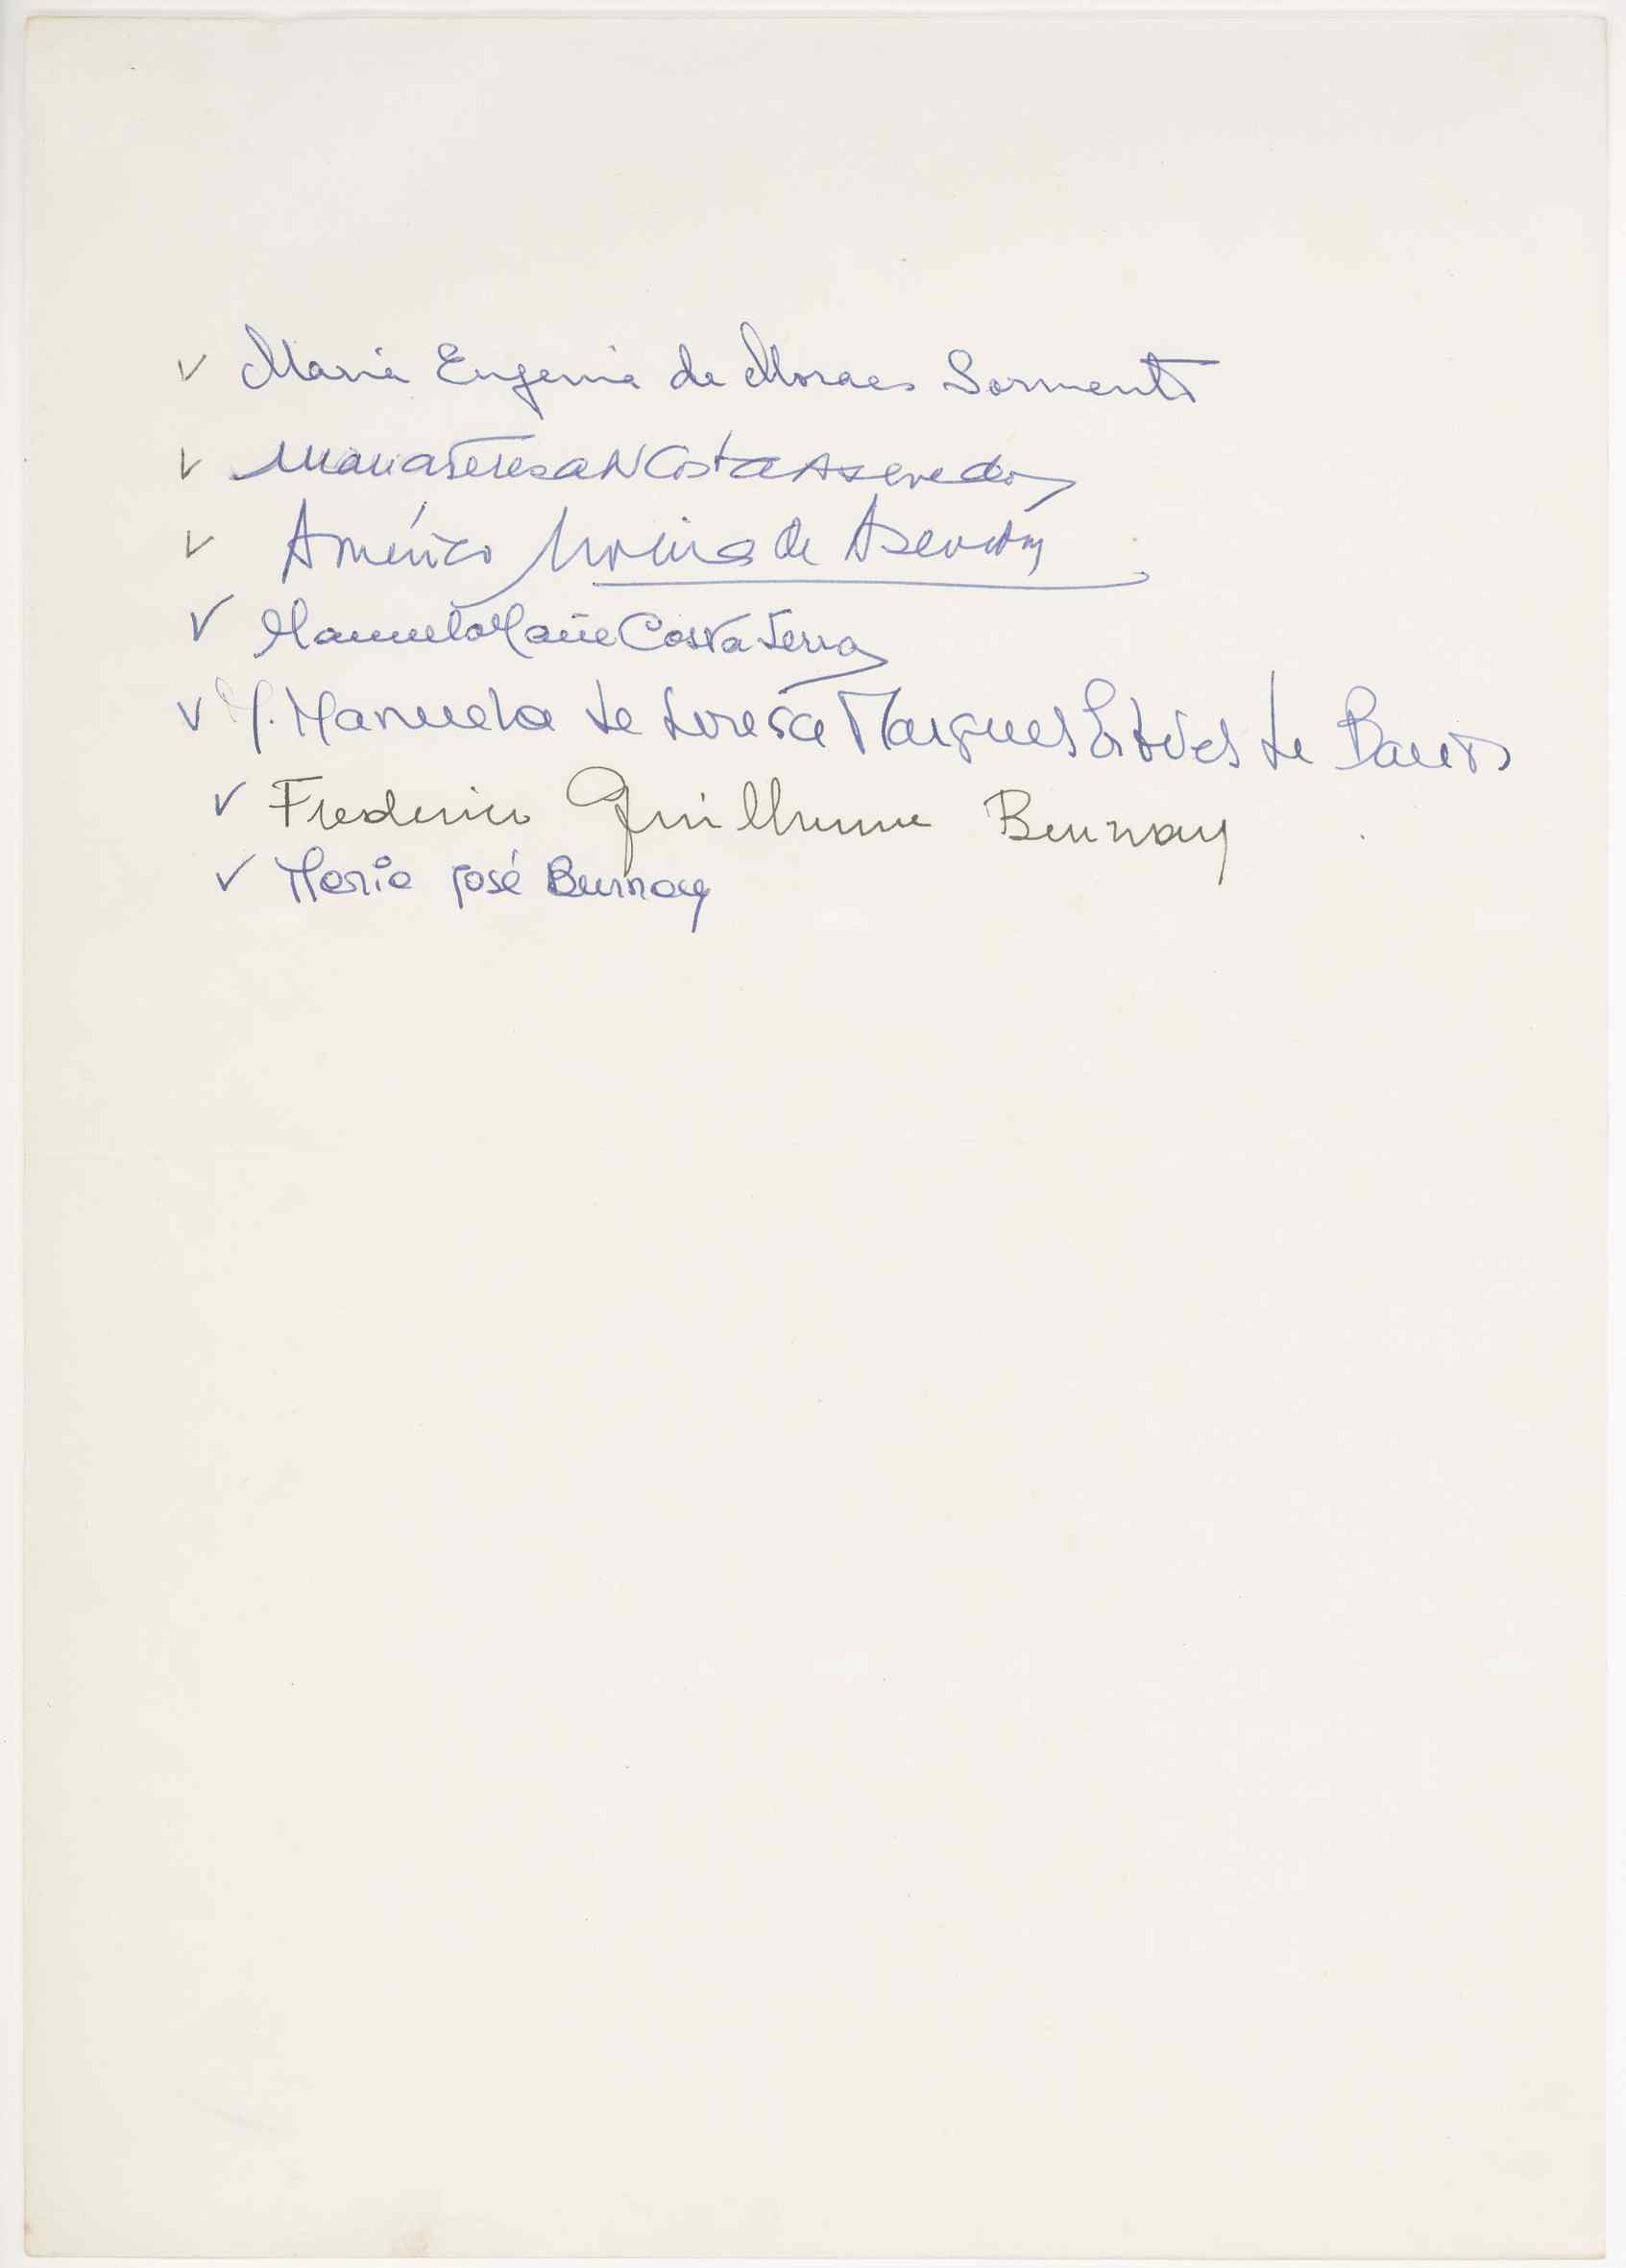 ✓ Maria Eugenia de Moraes Sarmento
✓ Maria Teresa N Costa Azevedo
✓ Américo de Azevedo
✓ Manuela Maria Costa Serra
✓ M. Manuela de Marques Esteves de Barros
✓ Frederico Guilherme Burnay
✓ Maria José Burnay